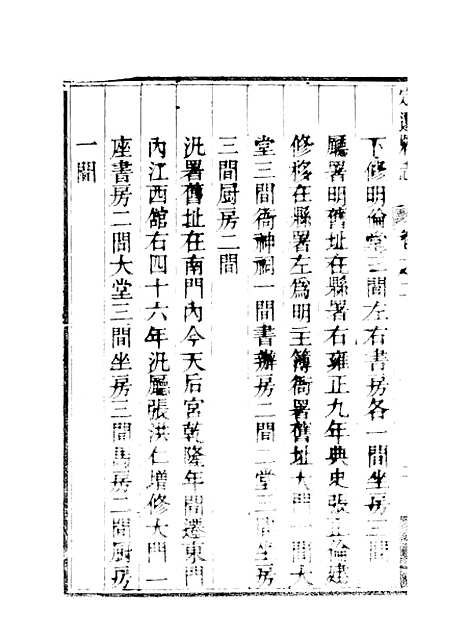 下修明倫堂三間左右書房各一間坐房三間
廳署明舊址在縣署右雍正九年典史張正倫建
修移在縣署左爲明主簿衙署舊址大門一間大
堂三間衙神祠一間書辦房二間二堂三間坐房
三間厨房二間
汛署舊址在南門內今天后宮乾隆年間遷東門
內江西舘右四十六年汛廳張洪仁增修大門一
座書房二間大堂三間坐房三間馬房二間厨房
一間